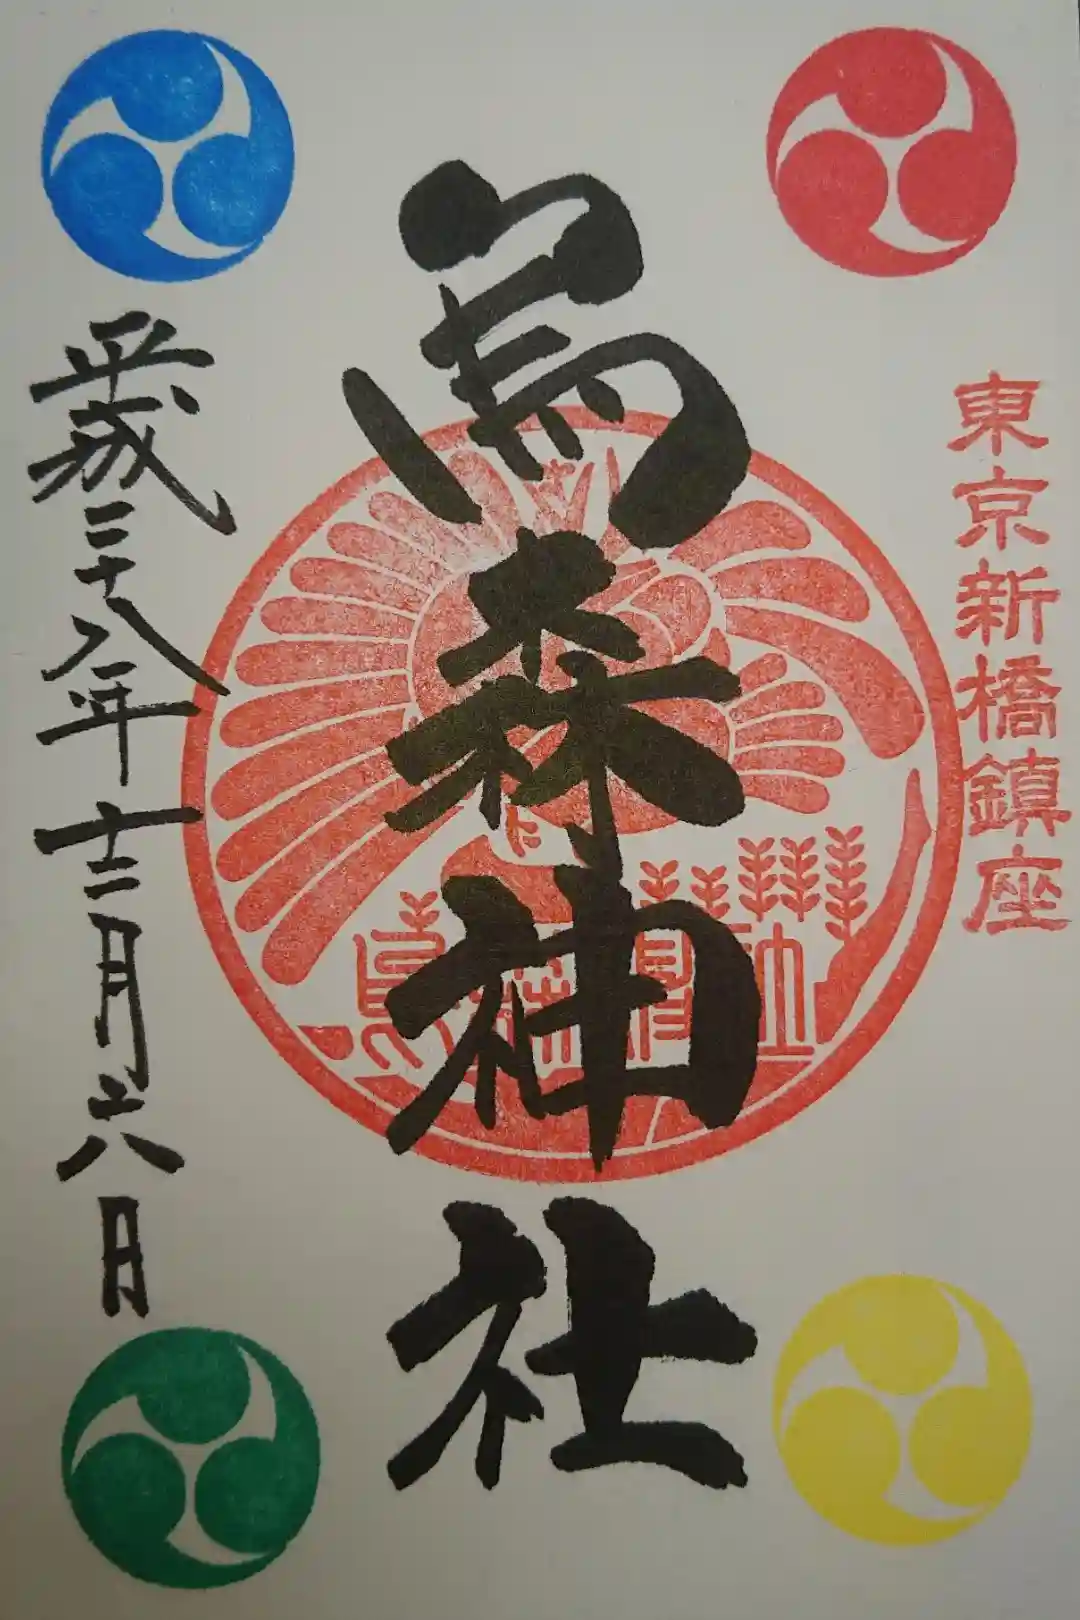 東京新橋鎮座
烏森神社
烏森神社
平成二十八年十二月六日